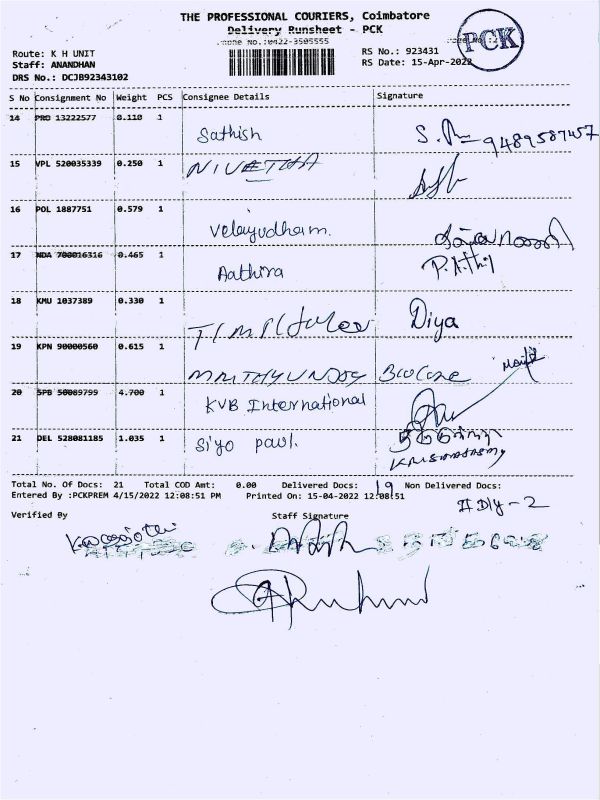 THE PROFESSIONAL COURIERS, Coimbatore
Delivery Runsheet - PCK
Phone No.:0422-3505555
PCK
Route: K H UNIT
RS No.: 923431
Staff: ANANDHAN
RS Date: 15-Apr-2022
DRS No.: DCJB92343102
S No Consignment No Weight PCS Consignee Details Signature
14 PRD 13222577 0.110 1 Sathish 9489587457
15 VPL 520035339 0.250 1 NIVETHA
16 POL 1887751 0.579 1 Velayudham.
17 NDA 700016316 0.465 1 Aathira
18 KMU 1037389 0.330 1 Diya
19 KPN 90000560 0.615 1 Biocare
20 SPB 50089799 4.700 1 KVB International
21 DEL 528081185 1.035 1 Siyo paul.
Total No. Of Docs: 21 Total COD Amt: 0.00 Delivered Docs: 19 Non Delivered Docs:
Entered By :PCKPREM 4/15/2022 12:08:51 PM Printed On: 15-04-2022 12:08:51
II Dly - 2
Verified By Staff Signature